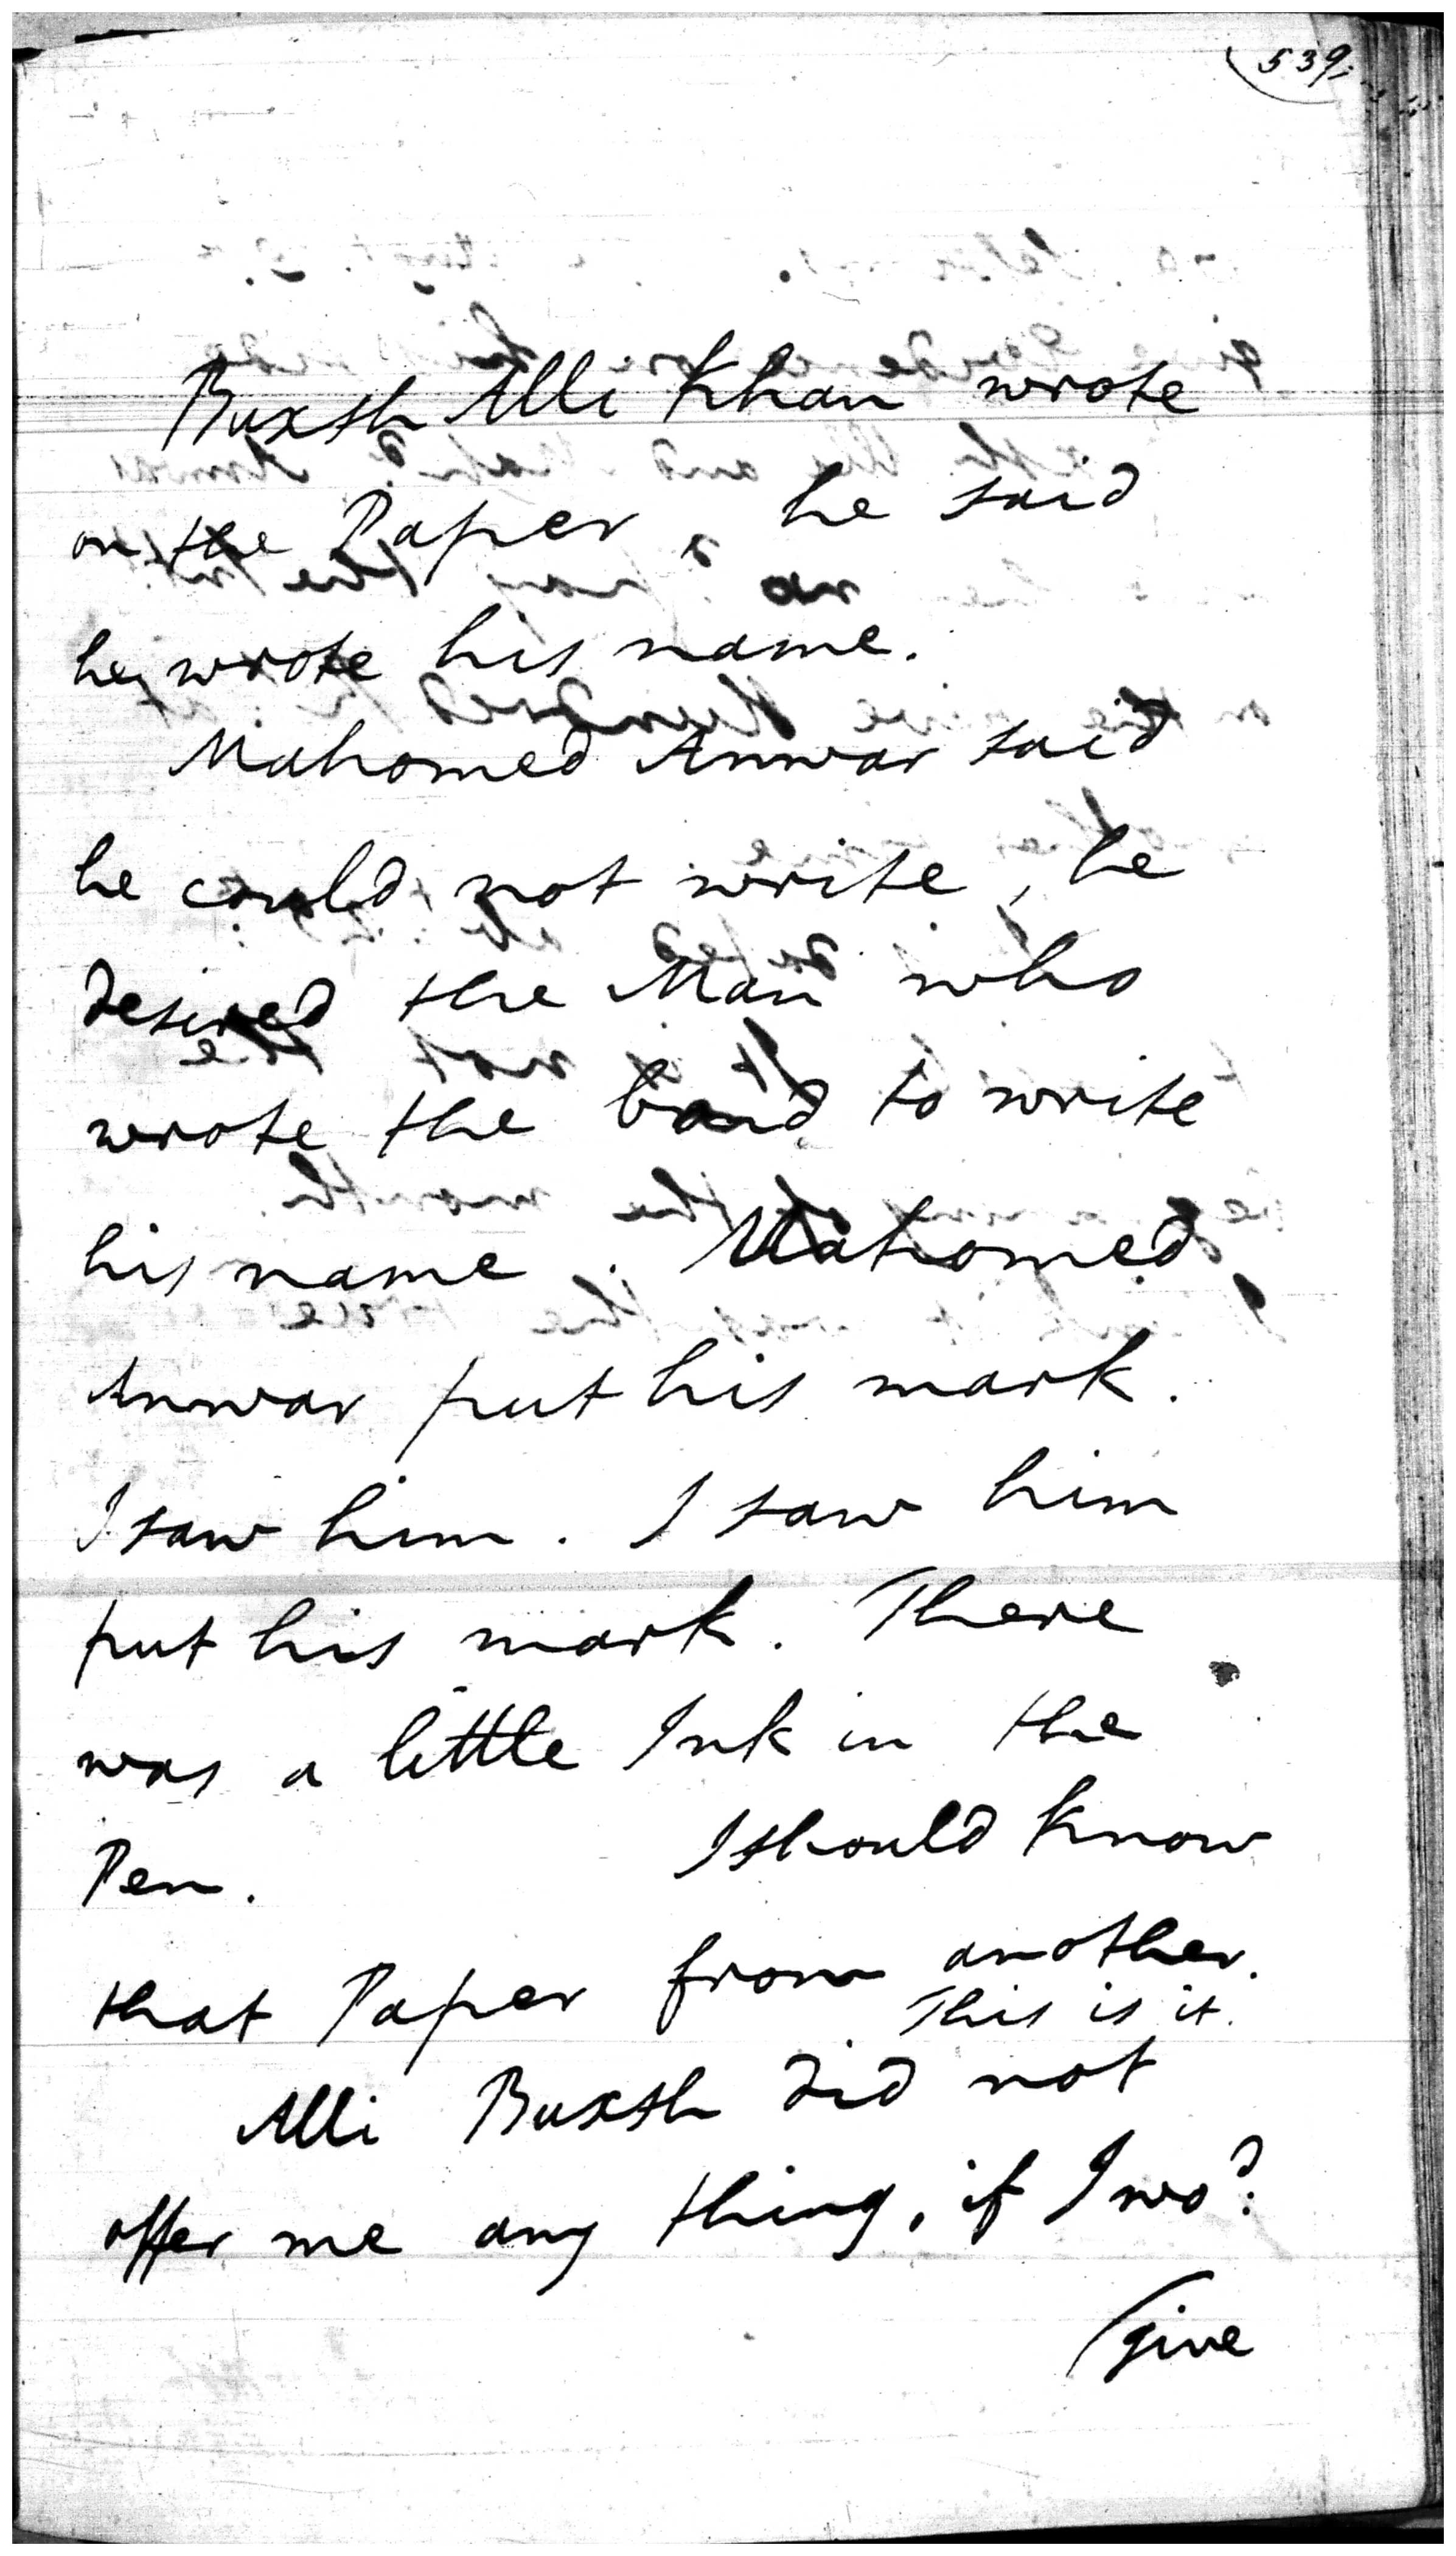 539
Buxsh Alli Khan wrote
on the Paper, he said
he wrote his name.
Mahomed Anwar said
he could not write, he
desired the Man who
wrote the bond to write
his name. Mahomed
Anwar put his mark.
I saw him. I saw him
put his mark. There
was a little Ink in the
Pen. I should know
that Paper from another.
This is it.
Alli Buxsh did not
offer me any thing, if I wod
give